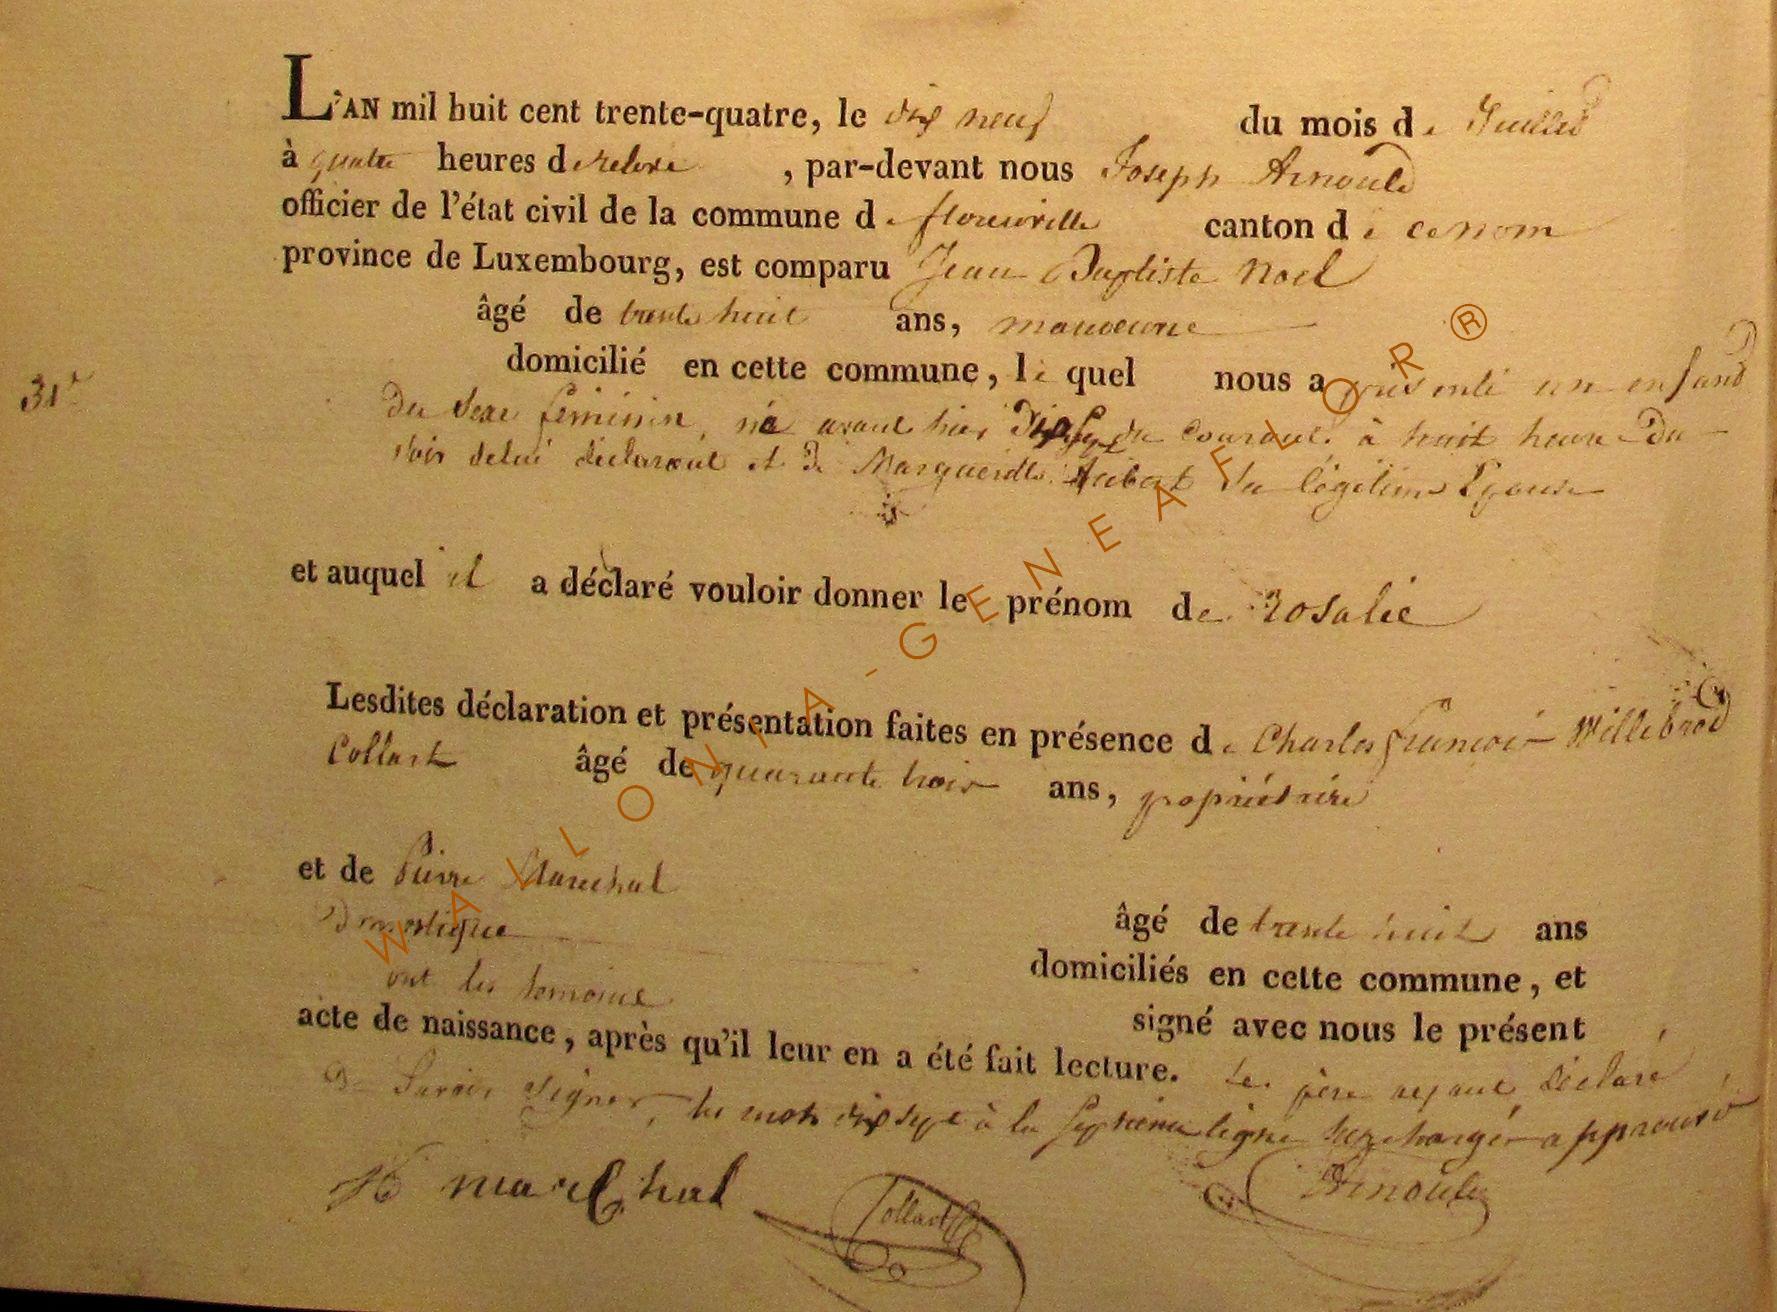 L'AN mil huit cent trente-quatre, le dix neuf du mois de Juillet
à quatre heures de relevé, par-devant nous Joseph Arnould
officier de l'état civil de la commune de florenville canton de ce nom
province de Luxembourg, est comparu Jean Baptiste Noel
âgé de trente huit ans, manoeuvre
domicilié en cette commune, le quel nous a présenté un enfand
31e
du Sexe féminin, né avant hier Dix sept du courant à huit heure du
soir de lui déclarant et de Margueritte Aubert Sa légitime Epouse
et auquel il a déclaré vouloir donner le prénom de Rosalie
Lesdites déclaration et présentation faites en présence de Charles françois Willibrod
Collart âgé de quarante trois ans, propriétaire
et de Pierre Marechal
âgé de trente huit ans
Domestique
domiciliés en cette commune, et
ont les temoins signé avec nous le présent
acte de naissance, après qu'il leur en a été fait lecture. Le père ayant déclaré
Savoir signer, les mots dix sept à la Septieme ligne Surchargés approuvé
marechal Collart Arnould
WALLONIA-GENEAFLOR®